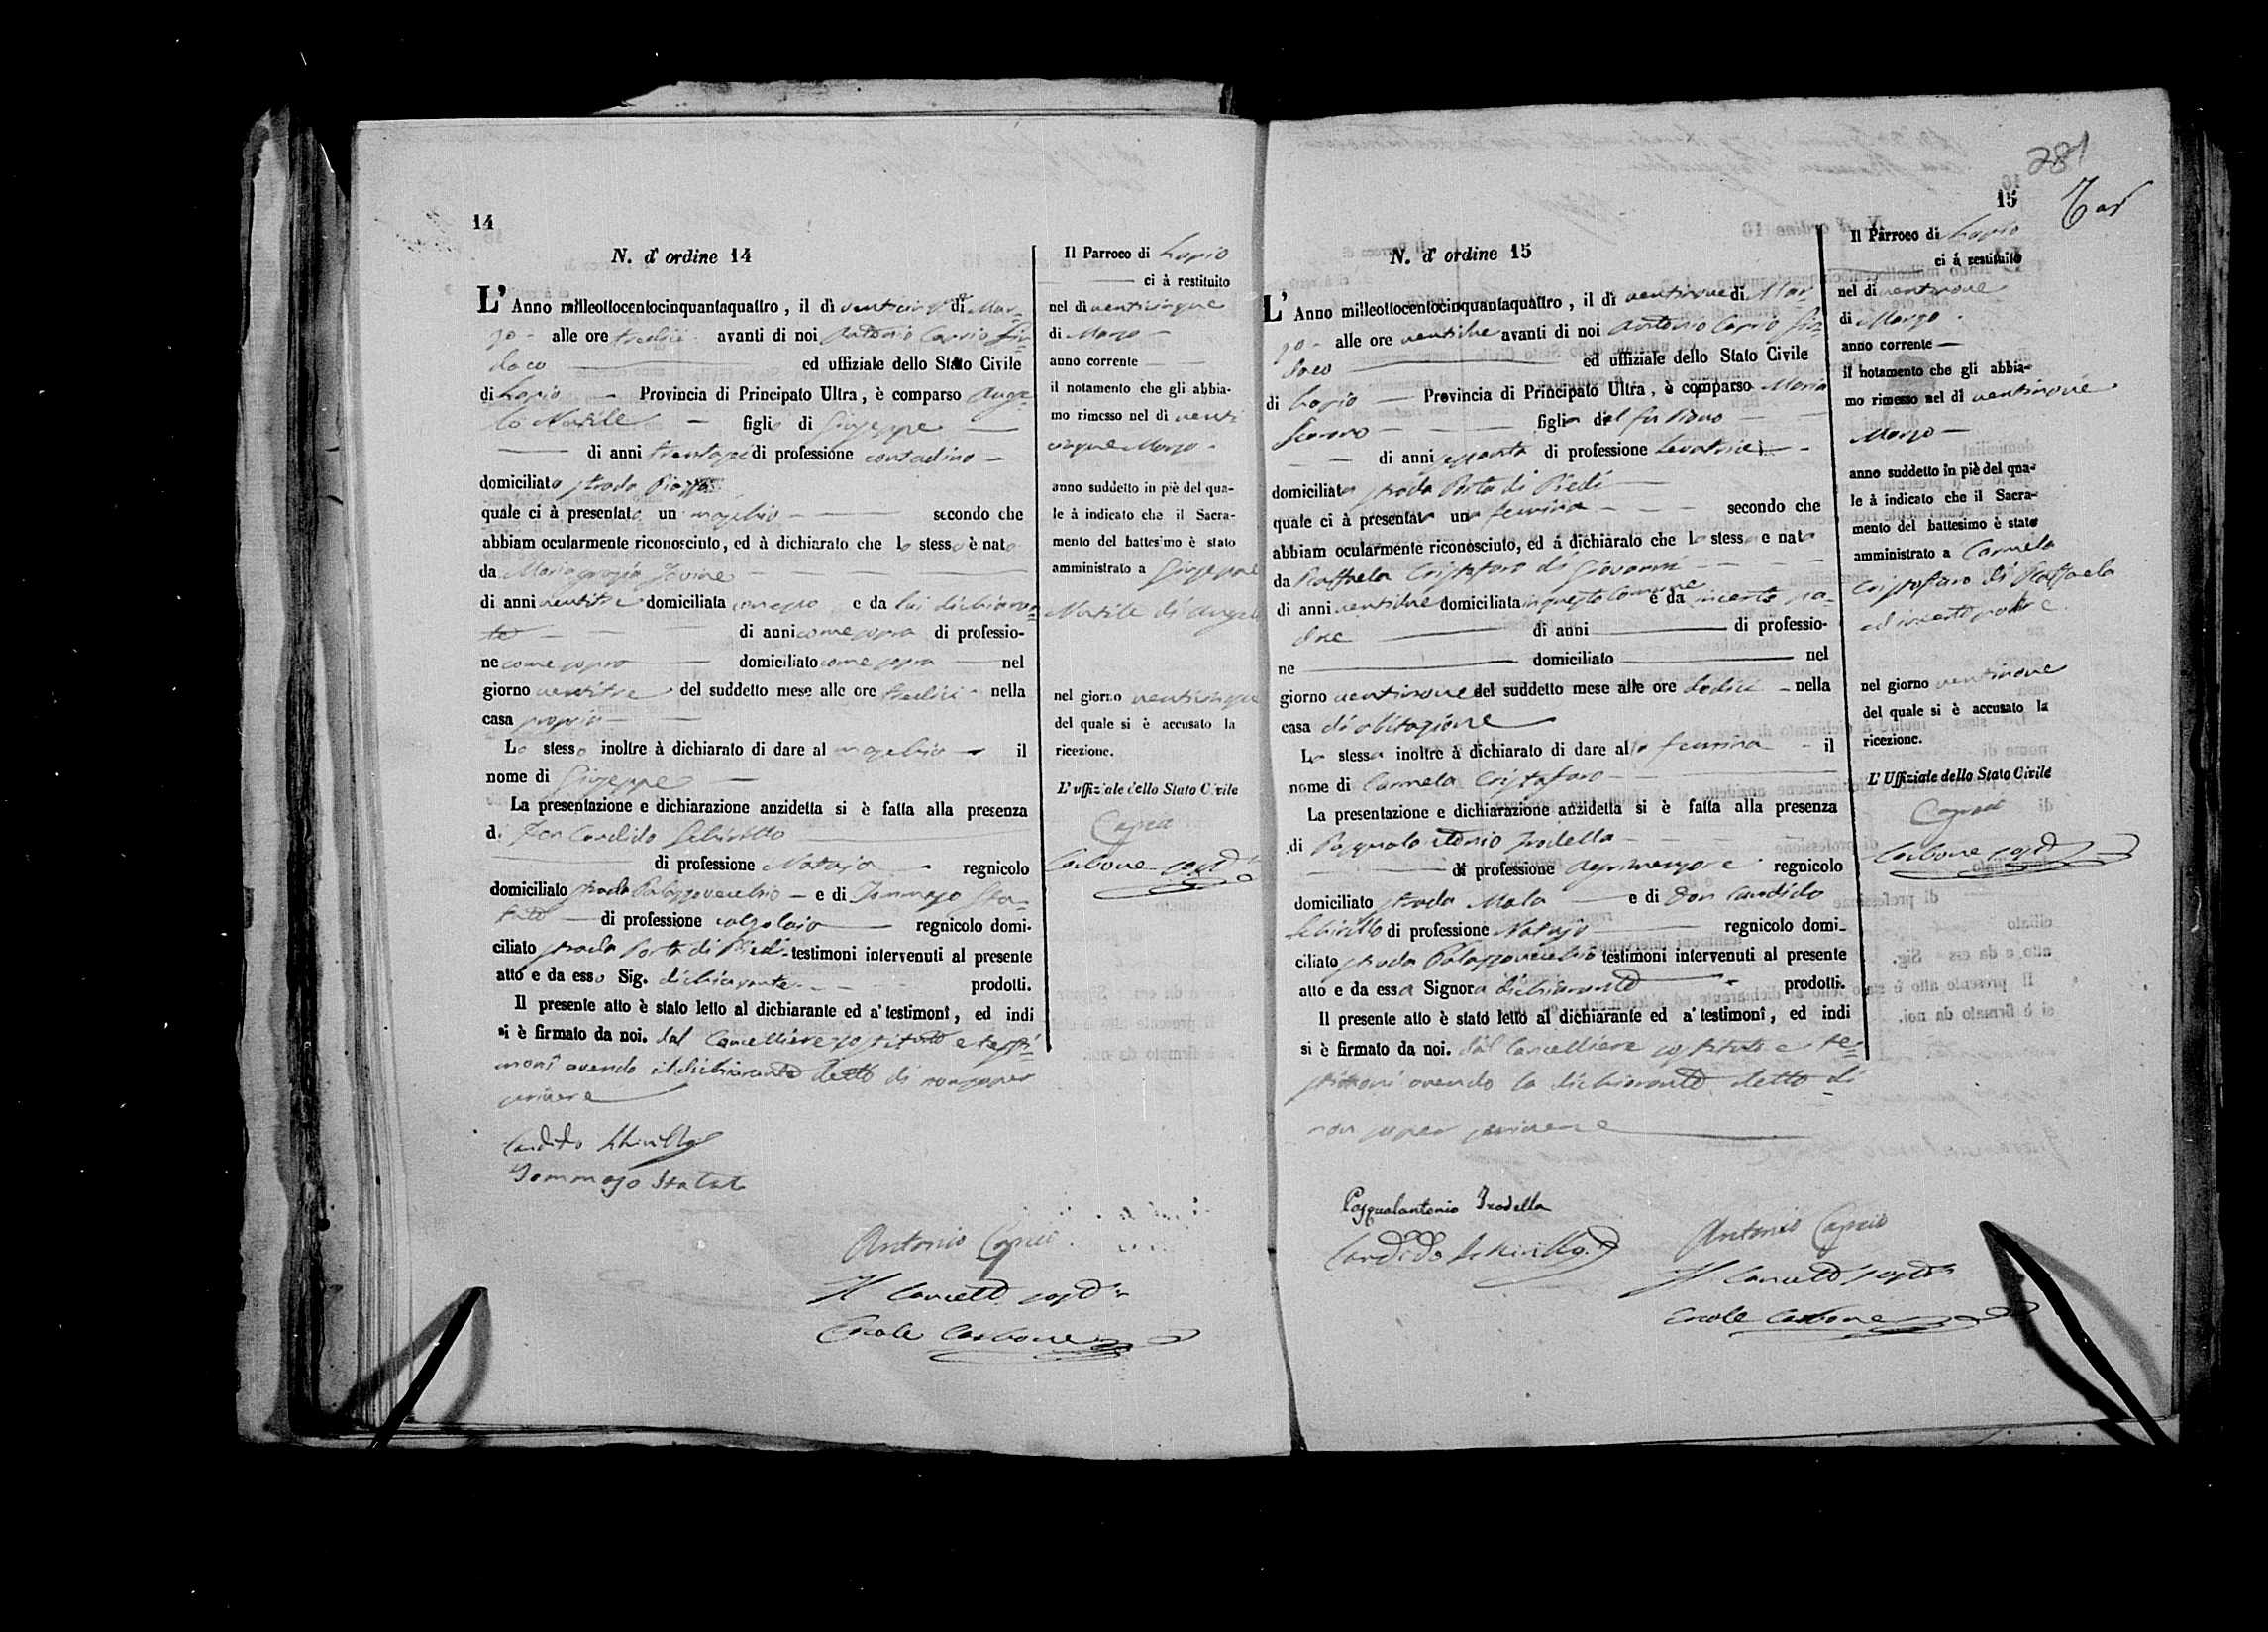 14
N. d' ordine 14
L' Anno milleottocentocinquantaquattro, il dì venticinque di Mar-
zo - alle ore tredici avanti di noi Antonio Caprio Sin-
daco ed uffiziale dello Stato Civile
di Lapio Provincia di Principato Ultra, è comparso Ange-
lo figlio di Giuseppe
di anni di professione contadino
domiciliato strada Piazza
quale ci à presentato un maschio secondo che
abbiam ocularmente riconosciuto, ed à dichiarato che lo stesso è nato
da Mariagrazia Iovine
di anni ventitre domiciliata e da lui dichiaran=
te di anni come sopra di professio-
ne come sopra domiciliato come sopra nel
giorno ventitre del suddetto mese alle ore tredici nella
casa propria
Lo stesso inoltre à dichiarato di dare al maschio il
nome di Giuseppe
La presentazione e dichiarazione anzidetta si è fatta alla presenza
di Don Candido Schirillo
di professione Notajo regnicolo
domiciliato strada Palazzovecchio e di Tommaso Sta-
tuto di professione calzolaio regnicolo domi-
ciliato strada Porta di Piedi testimoni intervenuti al presente
atto e da esso Sig. dichiarante prodotti.
Il presente atto è stato letto al dichiarante ed a' testimonî, ed indi
si è firmato da noi. dal Cancelliere sostituto e testi-
monî avendo il dichiarante detto di non saper
scrivere
Candido Schirillo
Tommaso Statuto
Antonio Caprio
Il Cancell. sost.
Ercole Carbone
Il Parroco di Lapio
ci à restituito
nel dì venticinque
di Marzo
anno corrente
il notamento che gli abbia-
mo rimesso nel dì venti
cinque Marzo
anno suddetto in piè del qua-
le à indicato che il Sacra-
mento del battesimo è stato
amministrato a Giuseppe
di Angelo
nel giorno venticinque
del quale si è accusato la
ricezione.
L' uffiziale dello Stato Civile
Caprio
Carbone sost.
281
15
N. d' ordine 15
L' Anno milleottocentocinquantaquattro, il dì ventinove di Mar-
zo - alle ore ventidue avanti di noi Antonio Caprio Sin-
daco ed uffiziale dello Stato Civile
di Lapio Provincia di Principato Ultra, è comparsa Maria
figlia del fu
di anni sessanta di professione Levatrice
domiciliata strada Porta di Piedi
quale ci à presentata una femina secondo che
abbiam ocularmente riconosciuto, ed à dichiarato che la stessa e nata
da Raffaela Cristofaro di Giovanni
di anni ventidue domiciliata in questo comune e da incerto pa-
dre di anni di professio-
ne domiciliato nel
giorno ventinove del suddetto mese alle ore dodici nella
casa di abitazione
La stessa inoltre à dichiarato di dare alla femina il
nome di Carmela Cristofaro
La presentazione e dichiarazione anzidetta si è fatta alla presenza
di Pasqualantonio Trodella
di professione agrimensore regnicolo
domiciliato strada Mala e di Don Candido
Schirillo di professione Notajo regnicolo domi-
ciliato strada Palazzovecchio testimoni intervenuti al presente
atto e da essa Signora dichiarante prodotti.
Il presente atto è stato letto al dichiarante ed a' testimonî, ed indi
si è firmato da noi. dal Cancelliere sostituto e te=
stimoni avendo la dichiarante detto di
non saper scrivere
Pasqualantonio Trodella
Candido Schirillo
Antonio Caprio
Il Cancell. sost.
Ercole Carbone
Il Parroco di Lapio
ci á restituito
nel dì ventinove
di Marzo
anno corrente
il notamento che gli abbia-
mo rimesso nel dì ventinove
Marzo
anno suddetto in piè del qua-
le à indicato che il Sacra-
mento del battesimo è stato
amministrato a Carmela
Cristofaro di Raffaela
ed incerto padre
nel giorno ventinove
del quale si è accusato la
ricezione.
L' Uffiziale dello Stato Civile
Caprio
Carbone sost.